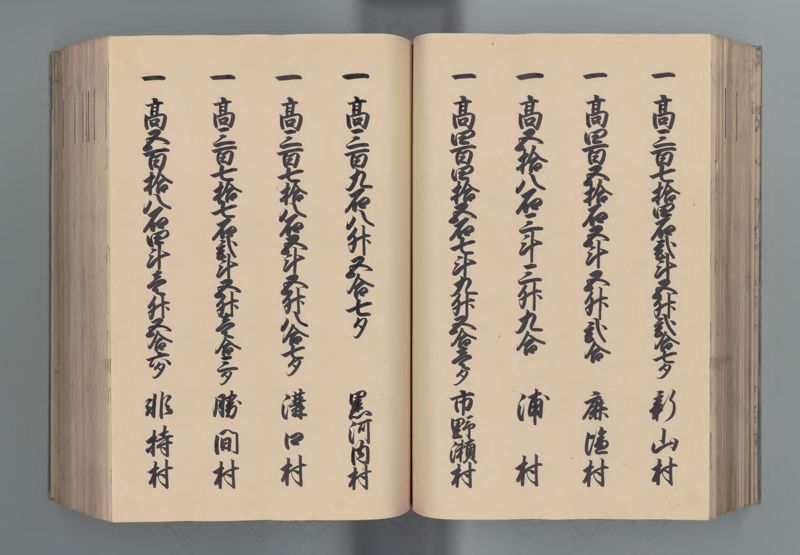 一 高三百七拾四石弐斗五升弐合七夕 新山村
一 高四百五拾石五斗五升弐合 廉塩村
一 高五拾八石三斗三升九合 浦村
一 高四百四拾五石七斗九升五合壱夕 市野瀬村
一 高三百九石八升五合七夕 黒河内村
一 高三百七拾八石五斗五升八合七夕 溝口村
一 高三百七拾七石弐斗五升壱合三夕 勝間村
一 高五百拾八石四斗壱升五合六夕 非持村